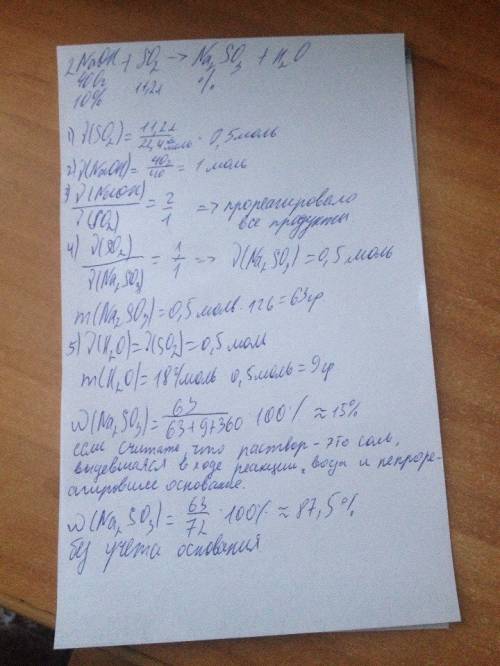 2NaOH + SO₂ → Na₂SO₃ + H₂O
400г 11,2л %
10%
1) ν(SO₂) = 11,2л / 22,4 моль = 0,5 моль
2) ν(NaOH) = 40г / 40 = 1 моль
3) ν(NaOH) / ν(SO₂) = 2/1 => прореагировало
все продукты
4) ν(SO₂) / ν(Na₂SO₃) = 1/1 => ν(Na₂SO₃) = 0,5 моль
m(Na₂SO₃) = 0,5 моль · 126 = 63гр
5) ν(H₂O) = ν(SO₂) = 0,5 моль
m(H₂O) = 18 г/моль 0,5 моль = 9 гр
ω(Na₂SO₃) = 63 / 63+9+360 100% ≈ 15%
если считать, что раствор - это соль,
выдевшаяся в ходе реакции, воды и непроре-
агировшее основание.
ω(Na₂SO₃) = 63/72 · 100% ≈ 87,5%
без учета основания